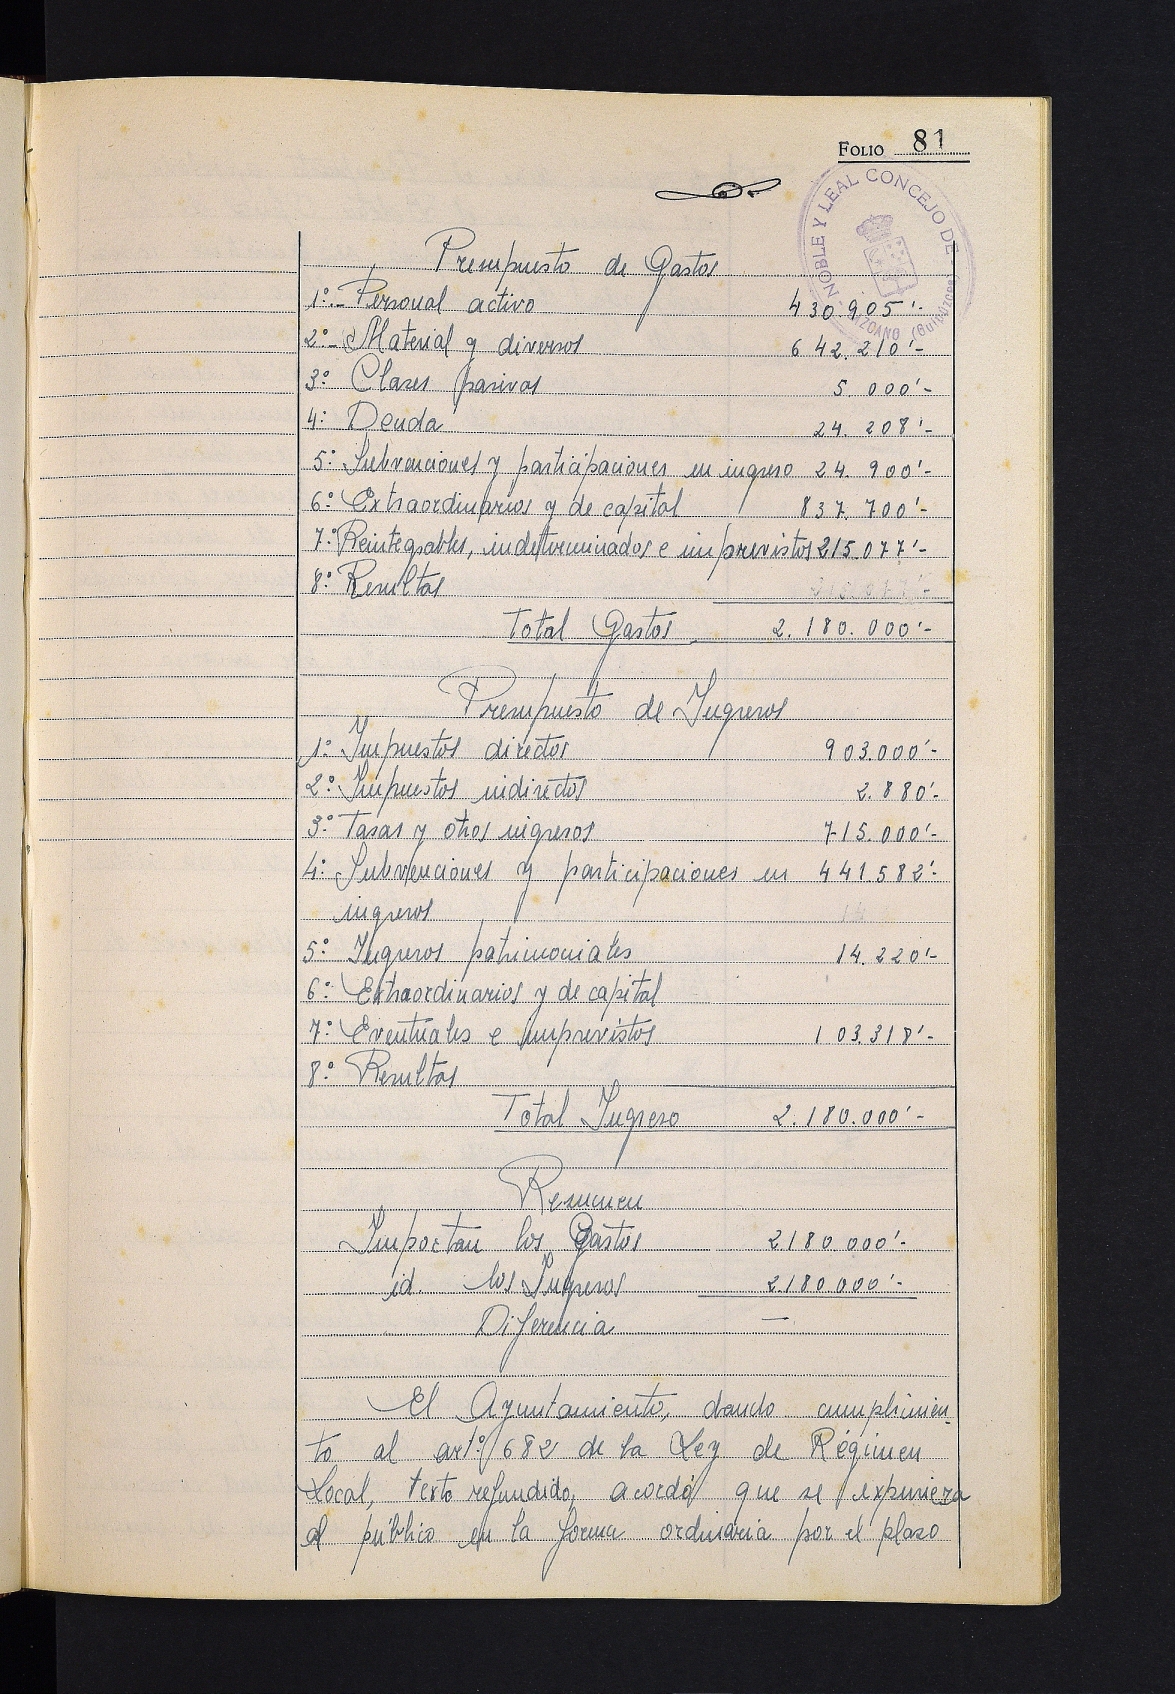 FOLIO 81
NOBLE Y LEAL CONCEJO DE
Presupuesto de Gastos
1º.- Personal activo 430.905'-
2º- Material y diversos 642.210'-
3º Clases pasivas 5.000'-
4º Deuda 24.208'-
5º Subvenciones y participaciones en ingreso 24.900'-
6º Extraordinarios y de capital 837.700'-
7º Reintegrables, indeterminados e imprevistos 215.077'-
8º Resultas
Total Gastos 2.180.000'-
Presupuesto de Ingresos
1º Impuestos directos 903.000'-
2º Impuestos indirectos 2.880'-
3º Tasas y otros ingresos 715.000'-
4º Subvenciones y participaciones en 441582'-
ingresos
5º Ingresos patrimoniales 14.220'-
6º Extraordinarios y de capital
7º Eventuales e imprevistos 103.318'-
8º Resultas
Total Ingreso 2.180.000'-
Resumen
Importan los Gastos 2180 000'-
id. los Ingresos 2.180000'-
Diferencia —
El Ayuntamiento, dando cumplimien-
to al artº 682 de la Ley de Régimen
Local, texto refundido, acordó que se expusiera
al público en la forma ordinaria por el plazo